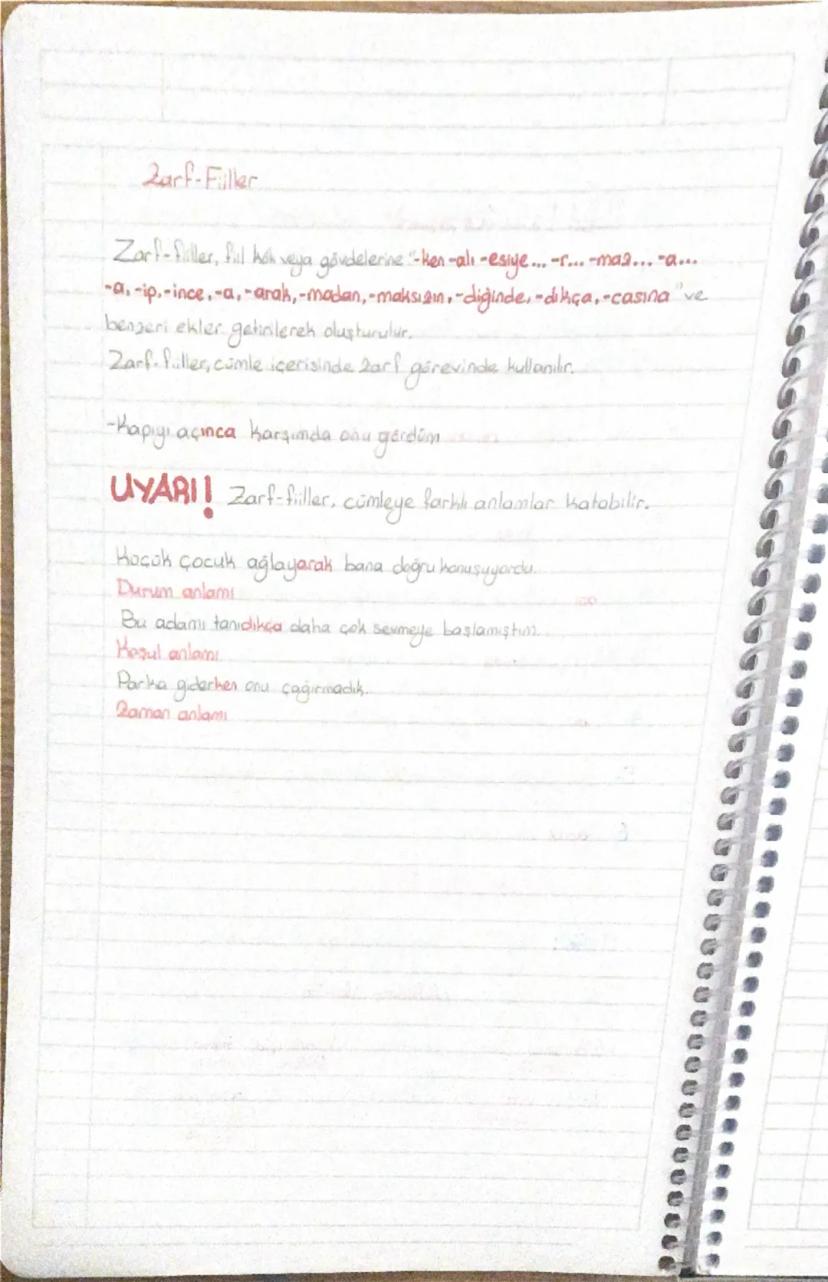 Zarf-Fiiller
Zarf-fiiller, fiil kök veya gövdelerine "-ken -alı -esiye... -r... -maz... -a...
-a, -ip, -ince, -a, -arak, -madan, -maksızın, -diğinde, -dıkça, -casına" ve
benzeri ekler getirilerek oluşturulur.
Zarf-fiiller, cümle içerisinde zarf görevinde kullanılır.
-Kapıyı açınca karşımda onu gördüm
UYARI! Zarf-fiiller, cümleye farklı anlamlar katabilir.
Küçük çocuk ağlayarak bana doğru konuşuyordu.
Durum anlamı
Bu adamı tanıdıkça daha çok sevmeye başlamıştım.
Koşul anlamı
Parka giderken onu çağırmadık.
Zaman anlamı